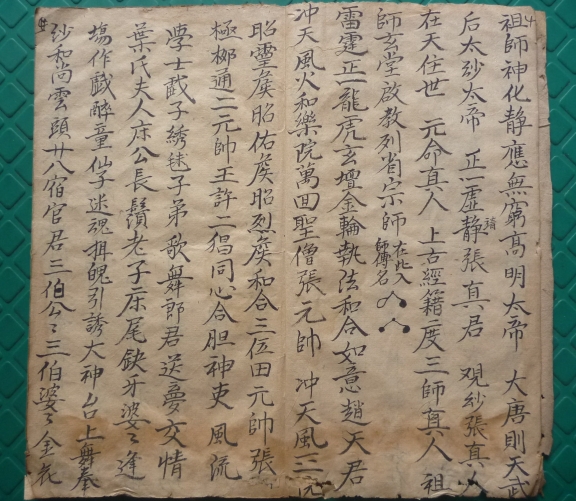 祖師神化静應無窮高明太帝 大唐則天武
后太玅太帝 正一虛静靖張真君 观玅張真人
在天住世 元命真人 上古經籍度三師真人 祖
師玄堂啟教列省宗師 在此入師傳名
雷霆正一龍虎玄壇金輪執法和合如意趙天君
冲天風火和樂院萬回聖僧張元帥 冲天風三
昭靈侯昭佑侯昭烈侯和合三位田元帥張
極梆通二元帥王許二猖同心合胆神吏 風流
學士戯子綉毬子弟歌舞郎君送夢交情
葉氏夫人床公長鬚老子床尾缺牙婆々逢
塲作戯醉童仙子迷魂引誘大神台上舞奉
沙和尚雲頭廿八宿官君三伯公々三伯婆々金花